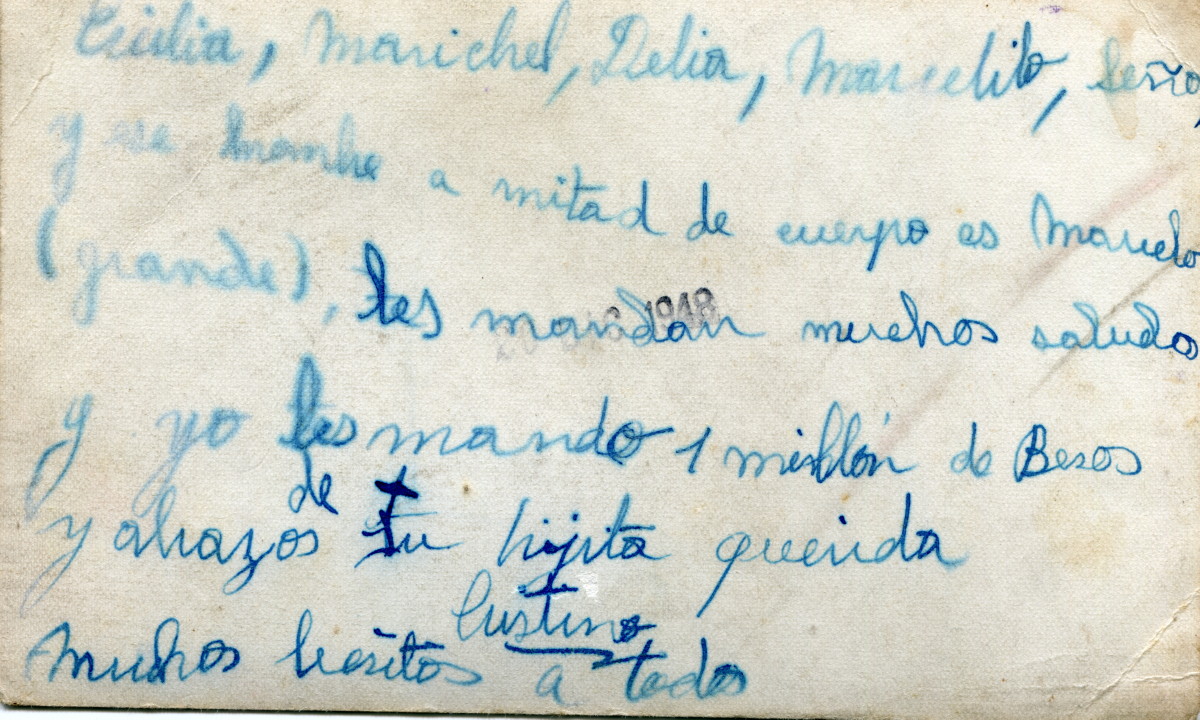 Cecilia, Marichel, Delia, Marcelito,
y ese hombre a mitad de cuerpo es Marcelo
(grande), les mandan muchos saludos
1948
y yo les mando 1 millón de Besos
y abrazos de tu hijita querida
Cristina
Muchos besitos a todos